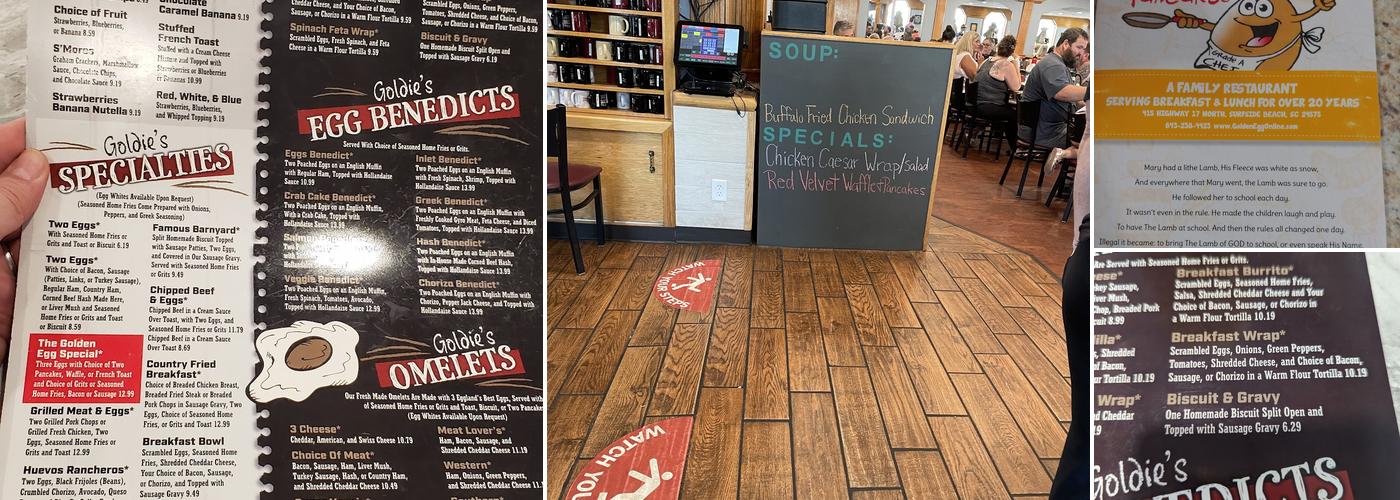 Choice of Fruit
Strawberries, Blueberries,
or Banana 8.59
S'Mores
Graham Crackers, Marshmallow
Sauce, Chocolate Chips,
and Chocolate Sauce 9.19
Strawberries
Banana Nutella 9.19
Chocolate
Caramel Banana 9.19
Stuffed
French Toast
Stuffed with a Cream Cheese
Mixture and Topped with
Strawberries or Blueberries
or Bananas 10.99
Red, White, & Blue
Strawberries, Blueberries,
and Whipped Topping 9.19
Goldie's
SPECIALTIES
(Egg Whites Available Upon Request)
(Seasoned Home Fries Come Prepared with Onions,
Peppers, and Greek Seasoning)
Two Eggs*
With Seasoned Home Fries or
Grits and Toast or Biscuit 6.19
Two Eggs*
With Choice of Bacon, Sausage
(Patties, Links, or Turkey Sausage),
Regular Ham, Country Ham,
Corned Beef Hash Made Here,
or Liver Mush and Seasoned
Home Fries or Grits and Toast
or Biscuit 8.59
The Golden
Egg Special*
Three Eggs with Choice of Two
Pancakes, Waffle, or French Toast
and Choice of Grits or Seasoned
Home Fries, Bacon or Sausage 12.99
Grilled Meat & Eggs*
Two Grilled Pork Chops or
Grilled Fresh Chicken, Two
Eggs, Seasoned Home Fries or
Grits and Toast 12.99
Huevos Rancheros*
Two Eggs, Black Frijoles (Beans),
Crumbled Chorizo, Avocado, Queso
Famous Barnyard*
Split Homemade Biscuit Topped
with Sausage Patties, Two Eggs,
and Covered in Our Sausage Gravy.
Served with Seasoned Home Fries
or Grits 9.49
Chipped Beef
& Eggs*
Chipped Beef in a Cream Sauce
Over Toast, with Two Eggs, and
Seasoned Home Fries or Grits 11.79
Chipped Beef in a Cream Sauce
Over Toast 8.69
Country Fried
Breakfast*
Choice of Breaded Chicken Breast,
Breaded Fried Steak or Breaded
Pork Chops in Sausage Gravy, Two
Eggs, Choice of Seasoned Home
Fries, or Grits and Toast 12.99
Breakfast Bowl
Scrambled Eggs, Seasoned Home
Fries, Shredded Cheddar Cheese,
Your Choice of Bacon, Sausage,
or Chorizo, and Topped with
Sausage Gravy 9.49
Cheddar Cheese, and Your Choice of Bacon,
Sausage, or Chorizo in a Warm Flour Tortilla 9.59
Spinach Feta Wrap*
Scrambled Eggs, Fresh Spinach, and Feta
Cheese in a Warm Flour Tortilla 9.59
Scrambled Eggs, Onions, Green Peppers,
Tomatoes, Shredded Cheese, and Choice of Bacon,
Sausage, or Chorizo in a Warm Flour Tortilla 9.59
Biscuit & Gravy
One Homemade Biscuit Split Open and
Topped with Sausage Gravy 6.19
Goldie's
EGG BENEDICTS
Served With Choice of Seasoned Home Fries or Grits.
Eggs Benedict*
Two Poached Eggs on an English Muffin
with Regular Ham, Topped with Hollandaise
Sauce 10.99
Crab Cake Benedict*
Two Poached Eggs on an English Muffin,
With a Crab Cake, Topped with
Hollandaise Sauce 13.99
Salmon
Veggie Benedict*
Two Poached Eggs on an English Muffin,
Fresh Spinach, Tomatoes, Avocado,
Topped with Hollandaise Sauce 12.99
Inlet Benedict*
Two Poached Eggs on an English Muffin
with Fresh Spinach, Shrimp, Topped with
Hollandaise Sauce 13.99
Greek Benedict*
Two Poached Eggs on an English Muffin,
Freshly Cooked Gyro Meat, Feta Cheese, and Diced
Tomatoes, Topped with Hollandaise Sauce 13.99
Hash Benedict*
Two Poached Eggs on an English Muffin
with In-House Made Corned Beef Hash,
Topped with Hollandaise Sauce 13.99
Chorizo Benedict*
Two Poached Eggs on an English Muffin with
Chorizo, Pepper Jack Cheese, and Topped with
Hollandaise Sauce 13.99
Goldie's
OMELETS
Our Fresh Made Omelets Are Made with 3 Eggland's Best Eggs, Served with
of Seasoned Home Fries or Grits and Toast, Biscuit, or Two Pancakes
(Egg Whites Available Upon Request)
3 Cheese*
Cheddar, American, and Swiss Cheese 10.79
Choice Of Meat*
Bacon, Sausage, Ham, Liver Mush,
Turkey Sausage, Hash, or Country Ham,
and Shredded Cheddar Cheese 10.49
Meat Lover's*
Ham, Bacon, Sausage, and
Shredded Cheddar Cheese 11.19
Western*
Ham, Onions, Green Peppers,
and Shredded Cheddar Cheese 11.
SOUP:
Buffalo Fried Chicken Sandwich
SPECIALS:
Chicken Caesar Wrap/salad
Red Velvet Waffle+Pancakes
WATCH YOUR STEPS
WATCH YOU
GRADE A
CHEF
A FAMILY RESTAURANT
SERVING BREAKFAST & LUNCH FOR OVER 20 YEARS
415 HIGHWAY 17 NORTH, SURFSIDE BEACH, SC 29575
843-238-4923 www.GoldenEggOnline.com
Mary had a lithe Lamb, His Fleece was white as snow,
And everywhere that Mary went, the Lamb was sure to go.
He followed her to school each day.
It wasn't even in the rule. He made the children laugh and play.
To have The Lamb at school. And then the rules all changed one day.
Illegal it became: to bring The Lamb of GOD to school, or even speak His Name.
Are Served with Seasoned Home Fries or Grits.
Breakfast Burrito*
Scrambled Eggs, Seasoned Home Fries,
Salsa, Shredded Cheddar Cheese and Your
Choice of Bacon, Sausage, or Chorizo in
a Warm Flour Tortilla 10.19
Breakfast Wrap*
Scrambled Eggs, Onions, Green Peppers,
Tomatoes, Shredded Cheese, and Choice of Bacon,
Sausage, or Chorizo in a Warm Flour Tortilla 10.19
Biscuit & Gravy
One Homemade Biscuit Split Open and
Topped with Sausage Gravy 6.29
Goldie's